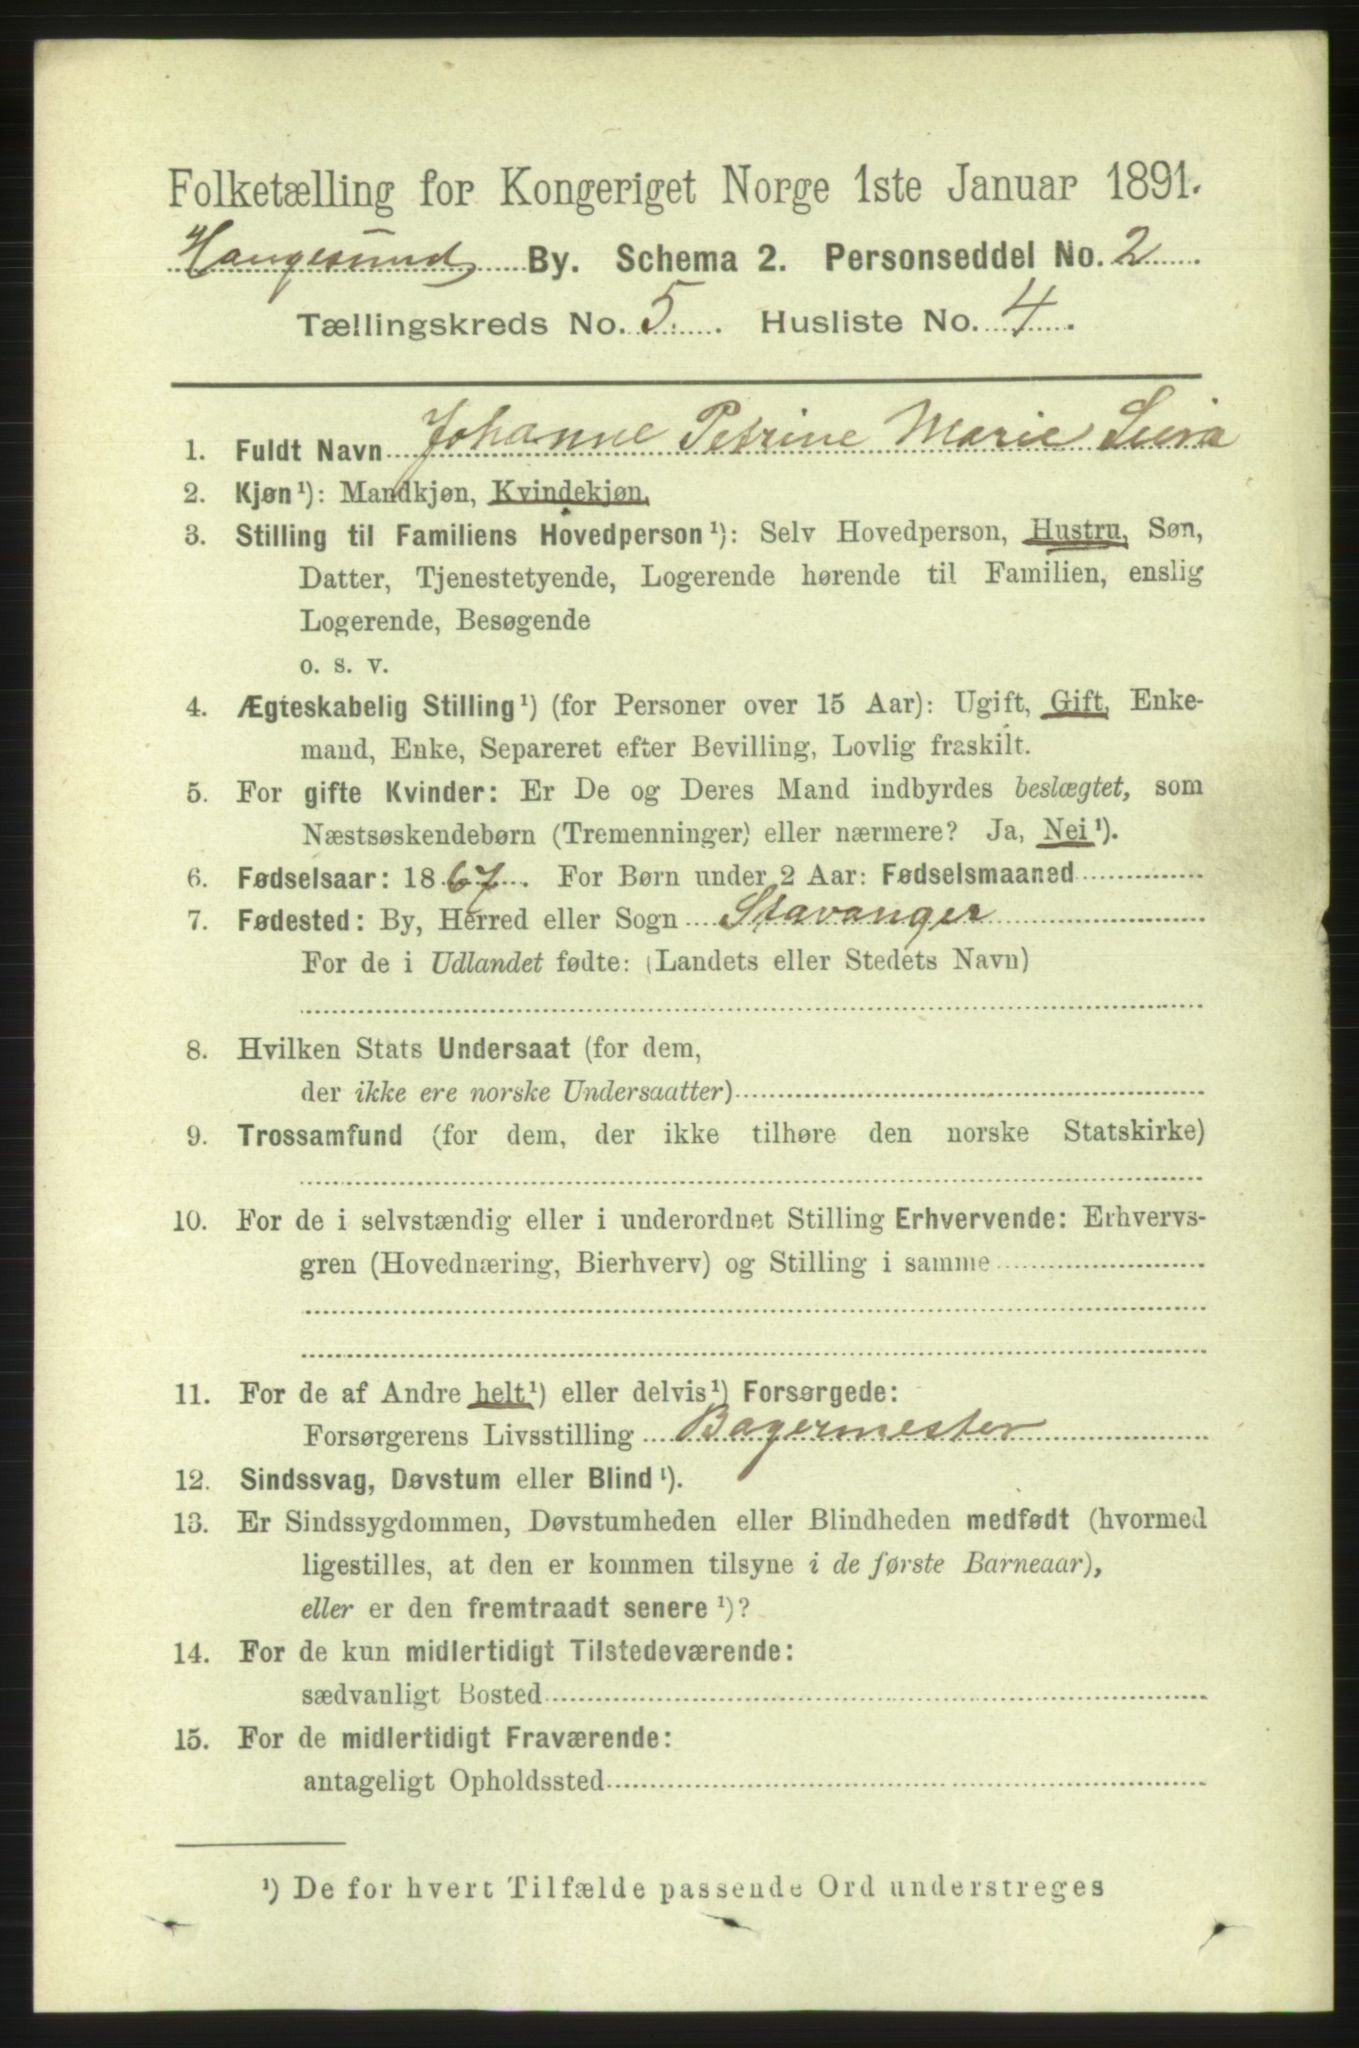 Folketælling for Kongeriget Norge 1ste Januar 1891.
Haugesund By. Schema 2. Personseddel No. 2
Tællingskreds No. 5. Husliste No. 4.
1. Fuldt Navn Johanne Petrine Marie
2. Kjøn¹): Mandkjøn, Kvindekjøn.
3. Stilling til Familiens Hovedperson¹): Selv Hovedperson, Hustru, Søn,
Datter, Tjenestetyende, Logerende hørende til Familien, enslig
Logerende, Besøgende
o. s. v.
4. Ægteskabelig Stilling¹) (for Personer over 15 Aar): Ugift, Gift, Enke-
mand, Enke, Separeret efter Bevilling, Lovlig fraskilt.
5. For gifte Kvinder: Er De og Deres Mand indbyrdes beslægtet, som
Næstsøskendebørn (Tremenninger) eller nærmere? Ja, Nei¹).
6. Fødselsaar: 1867. For Børn under 2 Aar: Fødselsmaaned
7. Fødested: By, Herred eller Sogn Stavanger
For de i Udlandet fødte: (Landets eller Stedets Navn)
8. Hvilken Stats Undersaat (for dem,
der ikke ere norske Undersaatter)
9. Trossamfund (for dem, der ikke tilhøre den norske Statskirke)
10. For de i selvstændig eller i underordnet Stilling Erhvervende: Erhvervs-
gren (Hovednæring, Bierhverv) og Stilling i samme
11. For de af Andre helt¹) eller delvis¹) Forsørgede:
Forsørgerens Livsstilling Bagermester
12. Sindssvag, Døvstum eller Blind¹).
13. Er Sindssygdommen, Døvstumheden eller Blindheden medfødt (hvormed
ligestilles, at den er kommen tilsyne i de første Barneaar),
eller er den fremtraadt senere¹)?
14. For de kun midlertidigt Tilstedeværende:
sædvanligt Bosted
15. For de midlertidigt Fraværende:
antageligt Opholdssted
¹) De for hvert Tilfælde passende Ord understreges